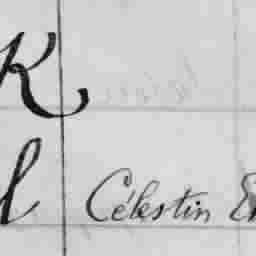 K
l Célestin